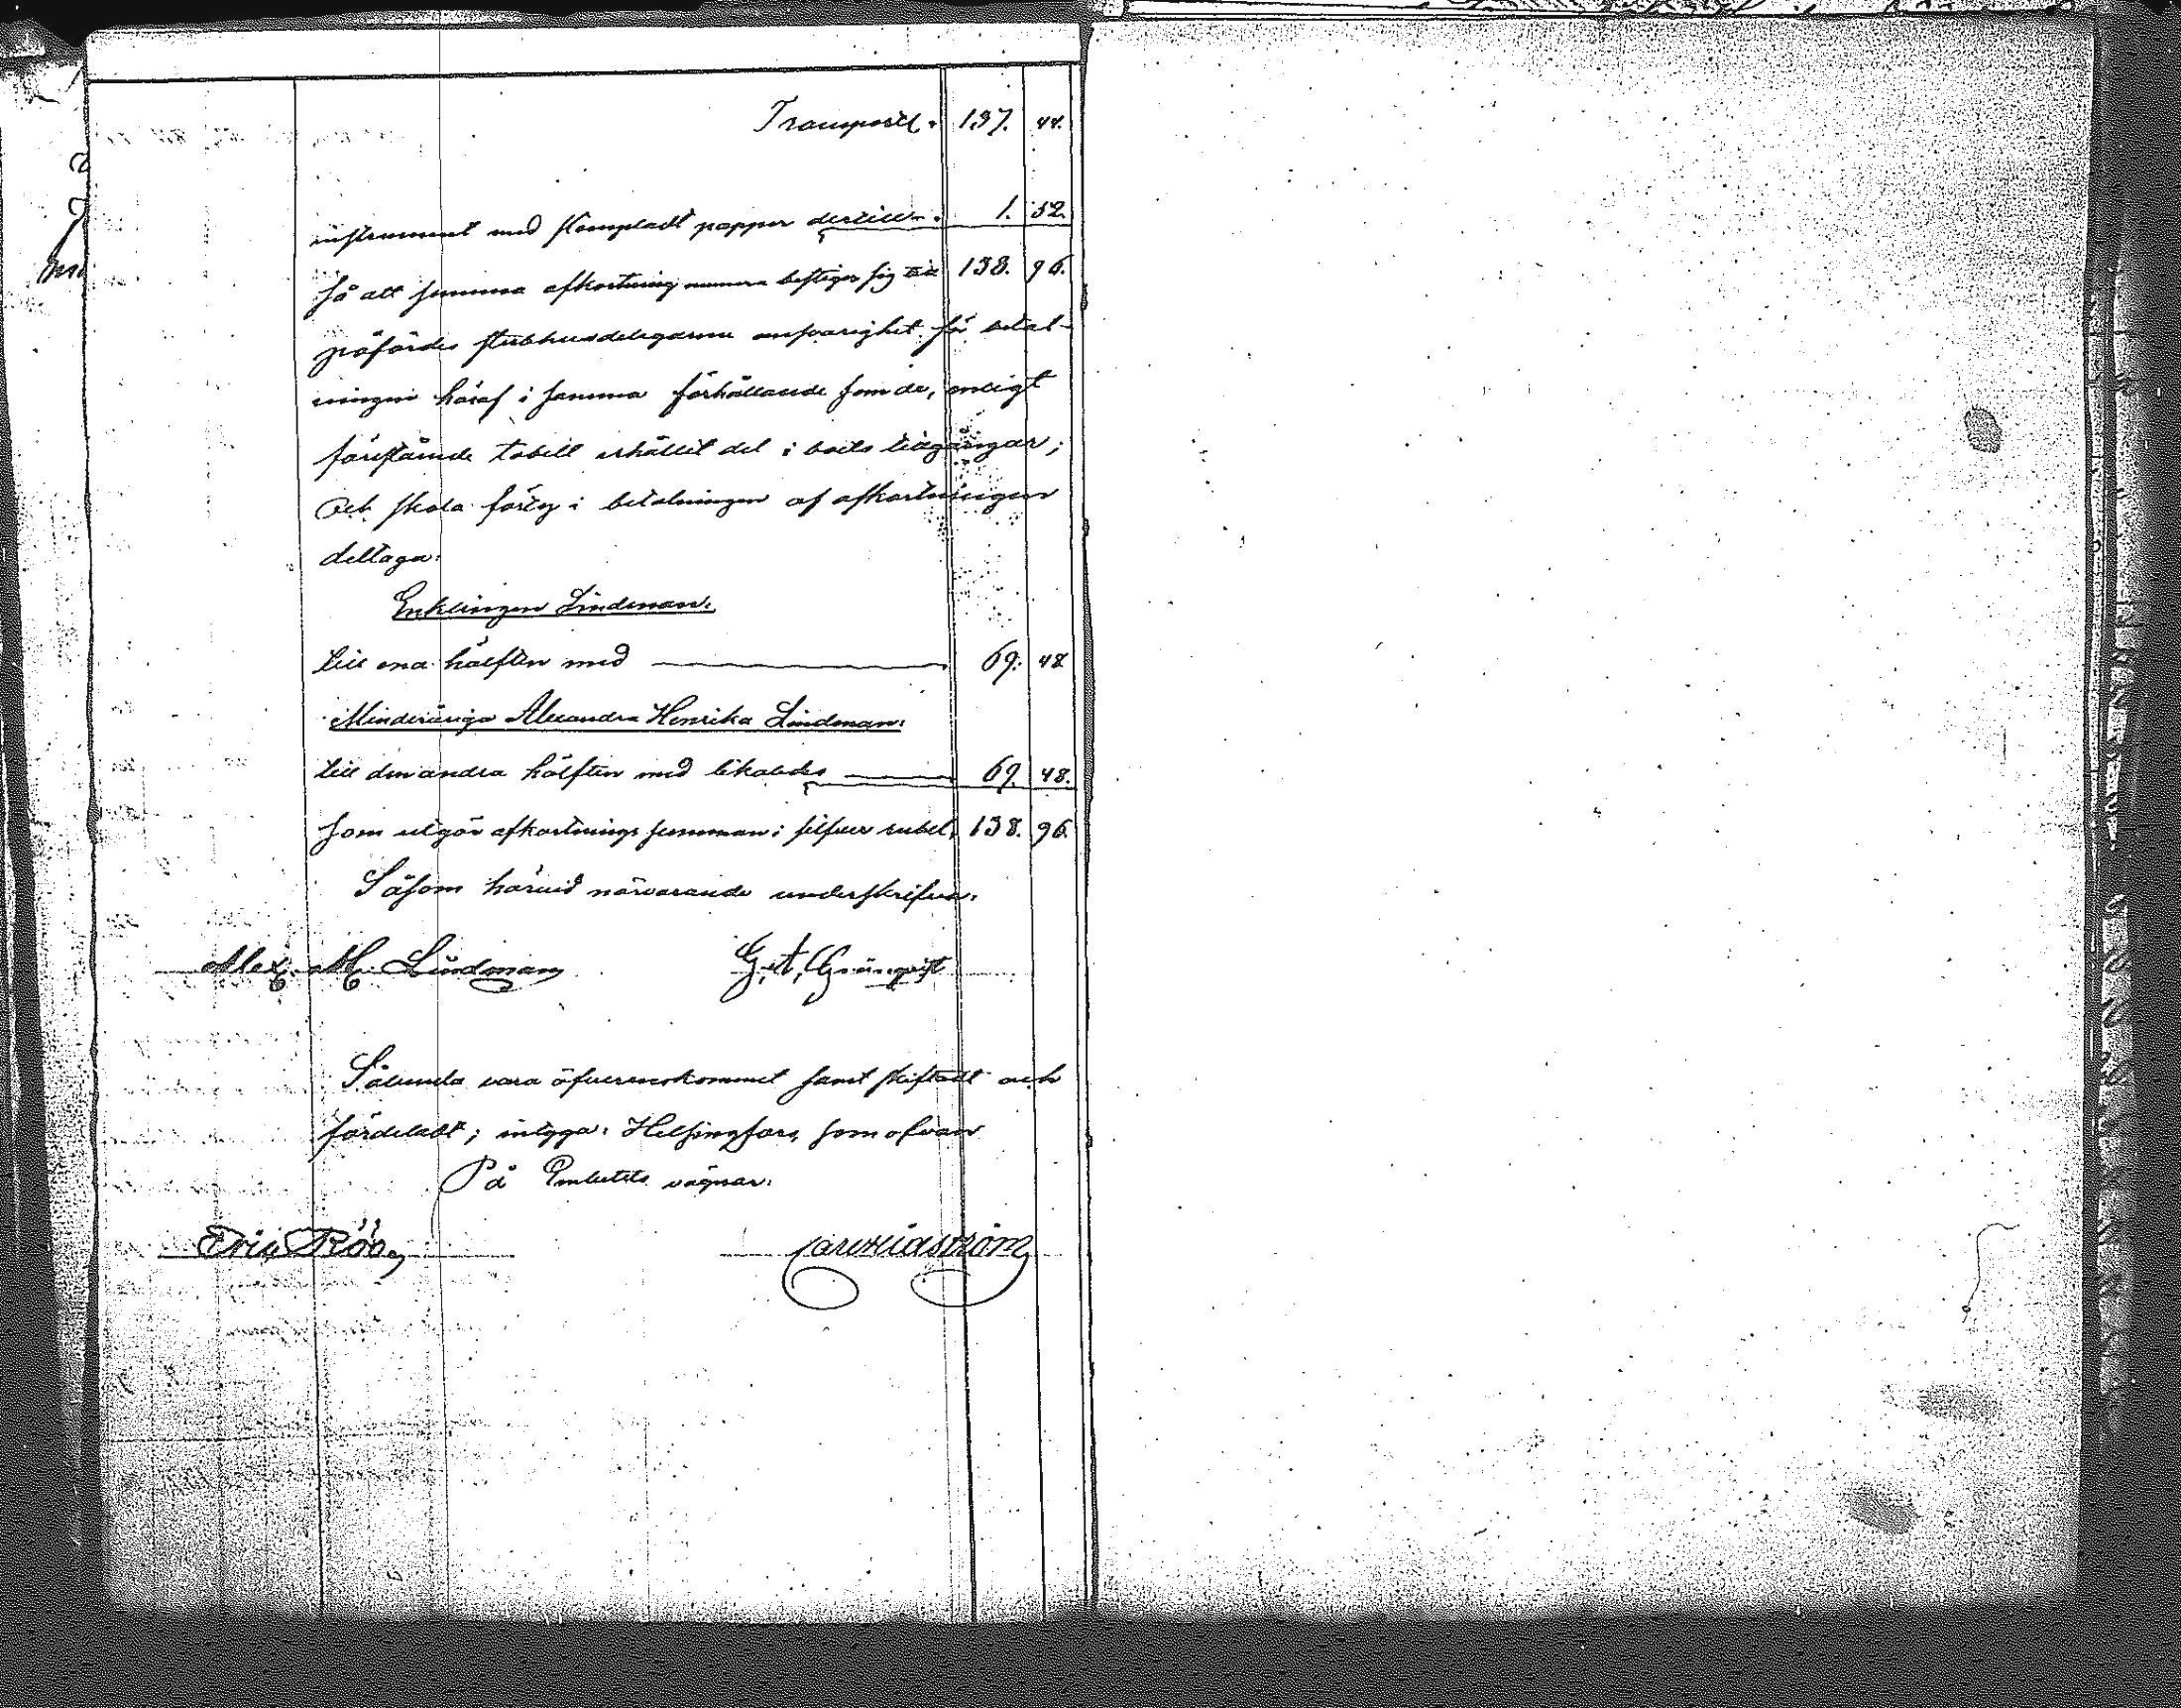 Transport. 137. 44.
instrument med stämpladt papper dertill. 1. 52.
så att summa afkortning numera bestiger sig till 138. 96.
påfördes sterbhusdelegarne ansvarighet för betal-
ningen häraf i samma förhållande som de, enligt
förestående tabell erhållit del i boets tillgångar;
och skola förty i betalningen af afkortningen
deltaga:
Enklingen Lindeman.
till ena hälften med 69. 48
Minderåriga Alexandra Henrika Lindeman.
till den andra hälften med likaledes 69. 48.
som utgör afkortnings summan i silfver rubel. 138. 96.
Såsom härvid närvarande underskrifva:
Alex. M. Lindeman G. A. Grönqvist
Sålunda vara öfverenskommet samt skiftadt och
fördeladt; intyga: Helsingfors som ofvan
På Embetets vägnar:
Eric Röö